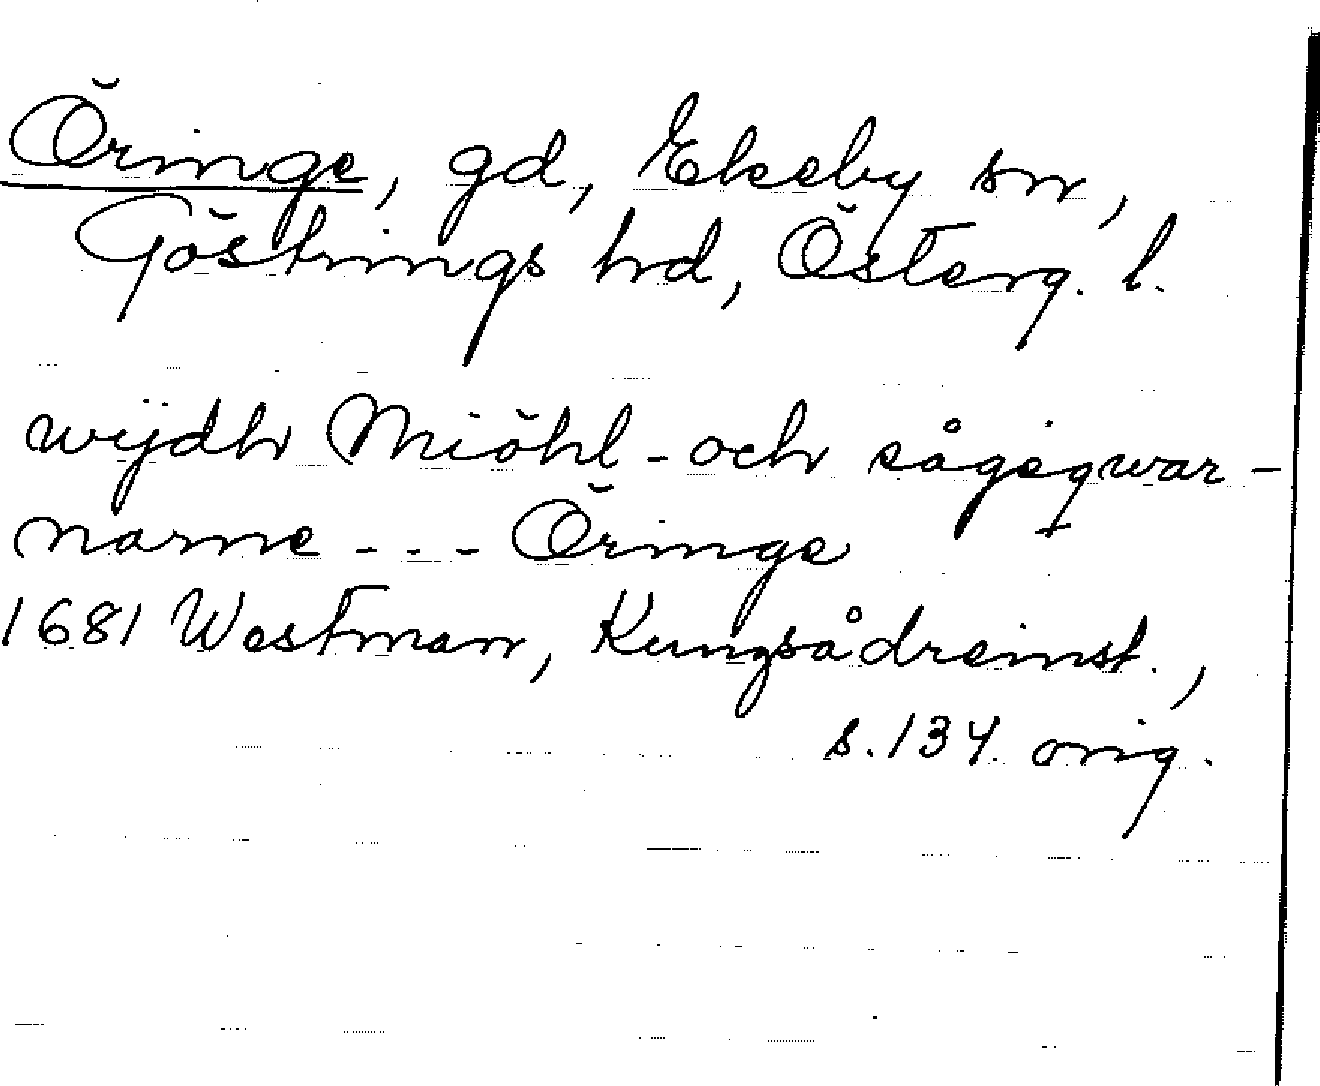 Öringe, gd, Ekeby sn,
Göstrings hd, Österg. l.
wijdh Miöhl- och sågeqwar-
narne - - - Öringe
1681 Westman, Kungsådreinst.,
s. 134. orig.